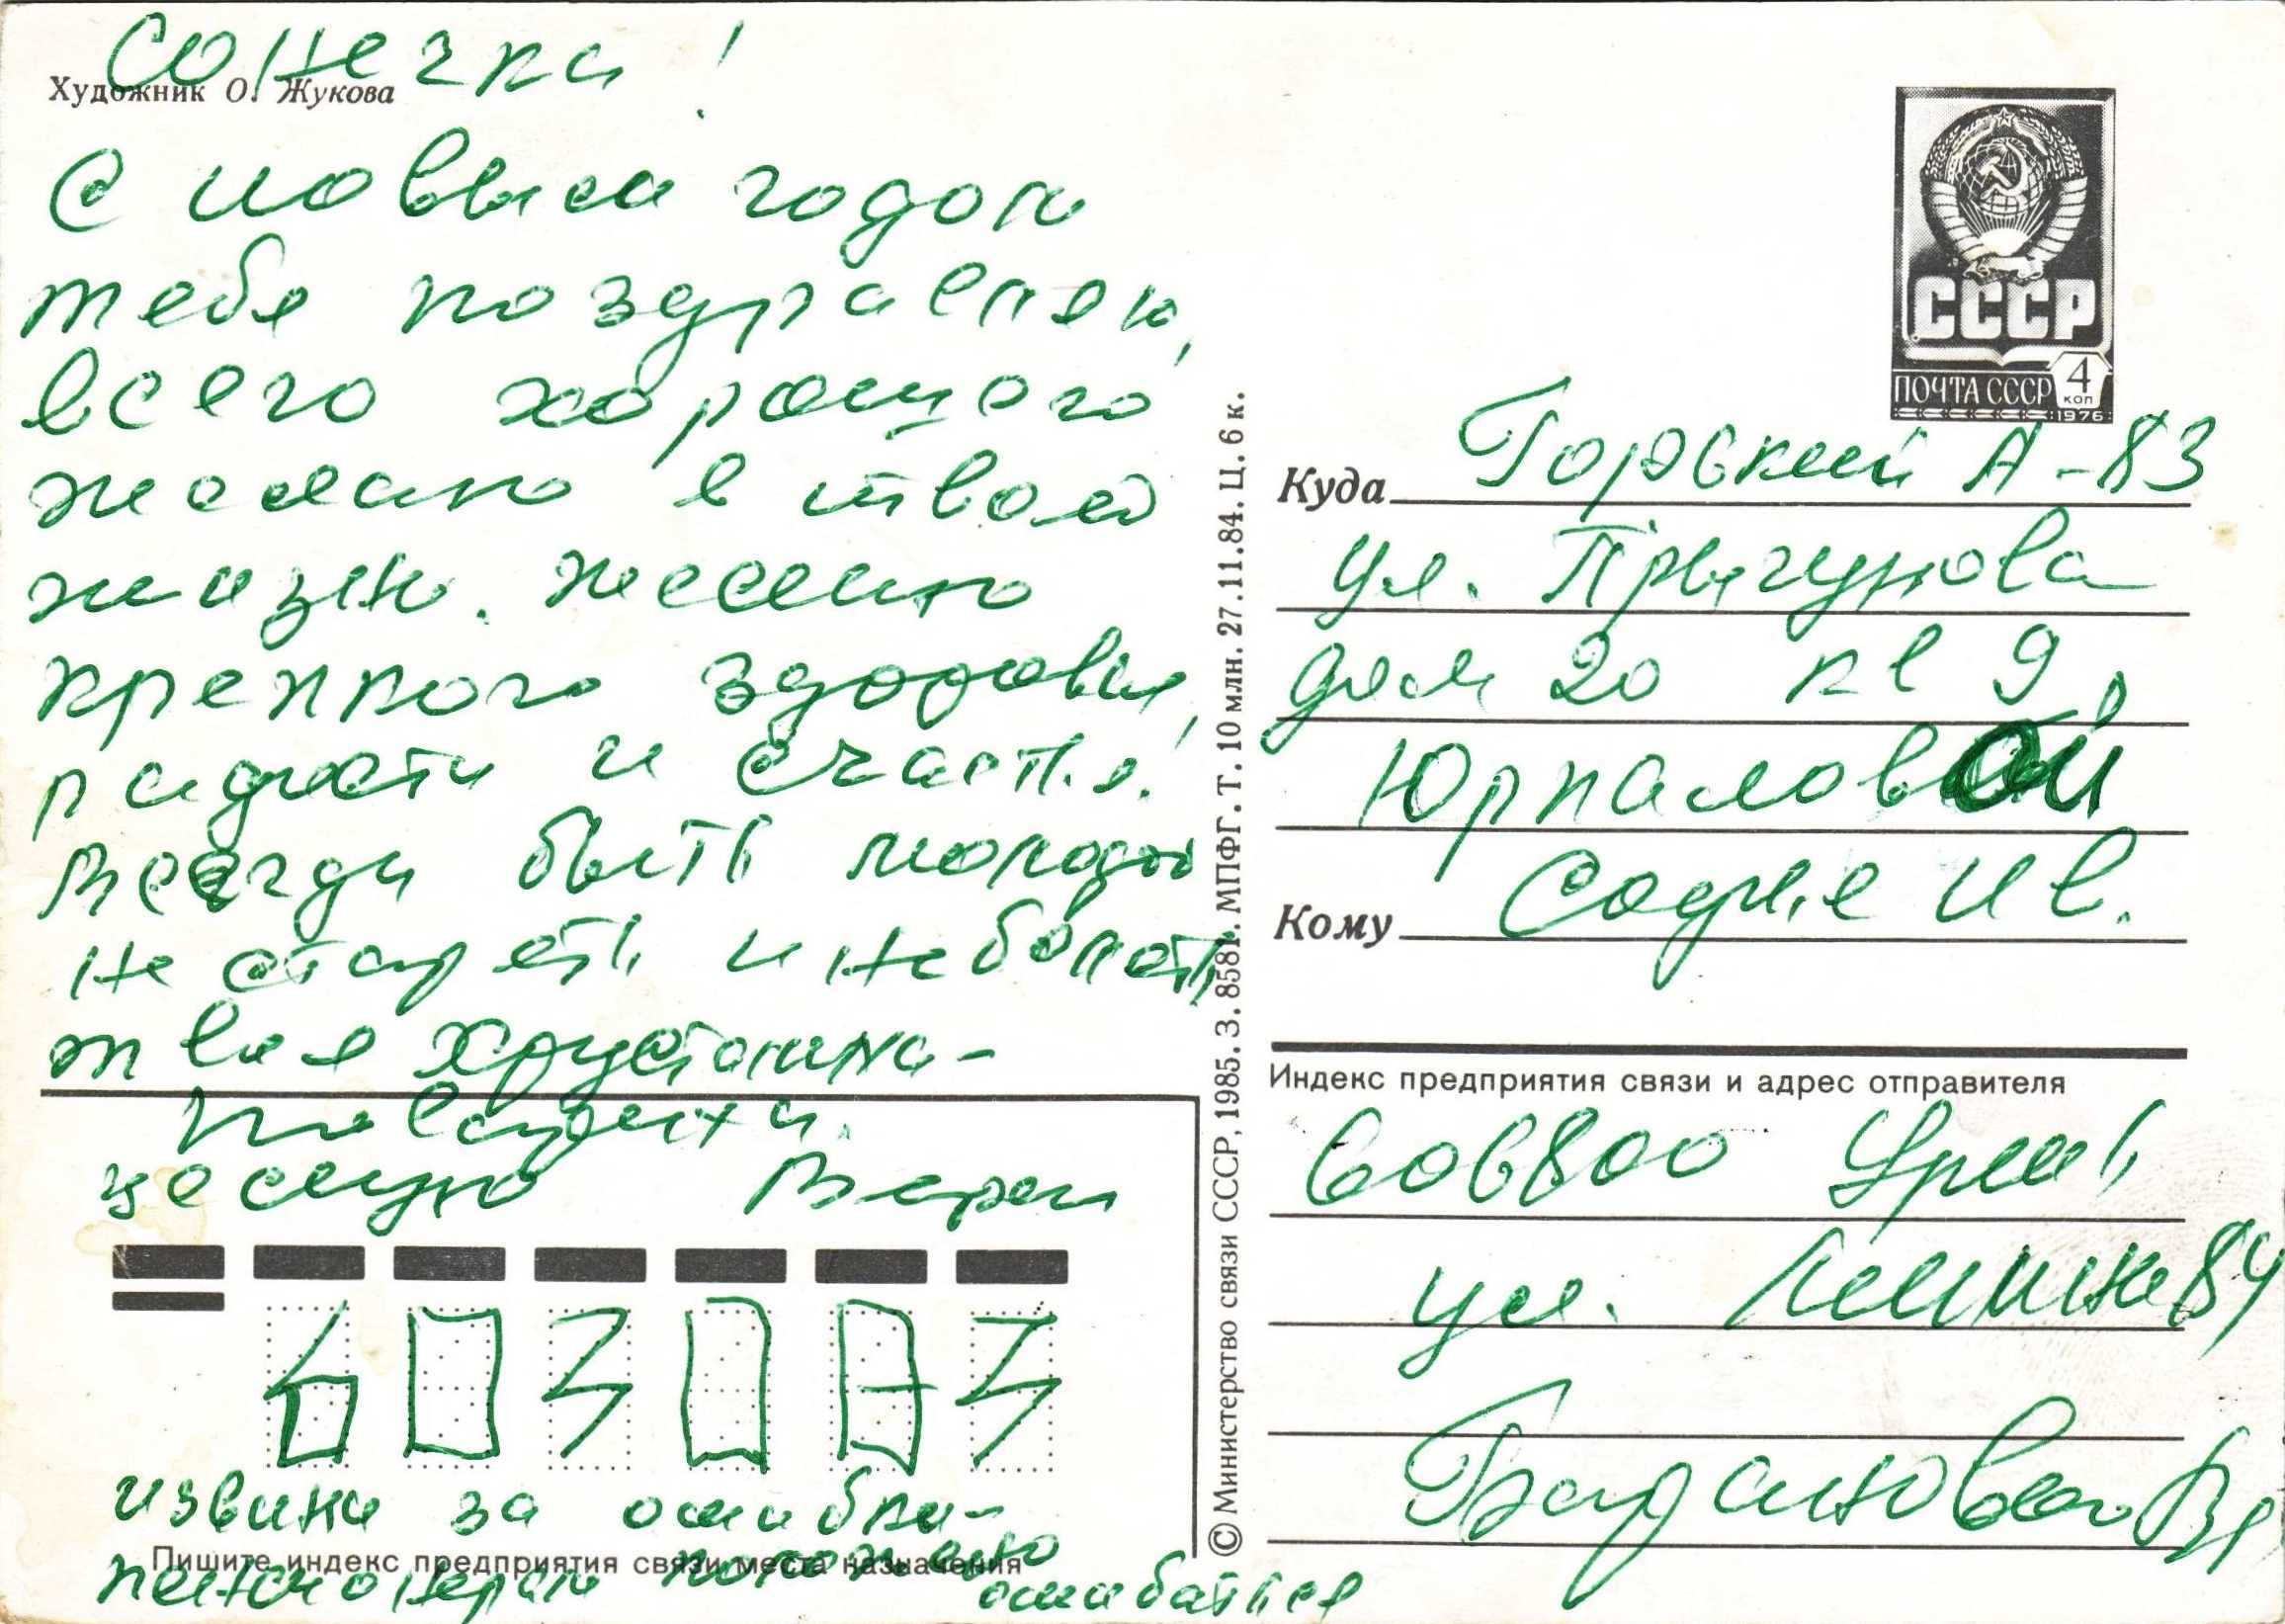 Сонечка!
Художник О. Жукова
С новым годом
тебя поздравляю,
всего хорошего
желаю в твоей
жизни. желаю
крепкого здоровья,
радости и счастья!
Всегда быть молодой
не стареть и не болеть
твоя хрустальна-
целую Вера
извини за ошибки-
пенсионерам
ошибаться
Пишите индекс предприятия связи места назначения
603083
© Министерство связи СССР, 1985. З. 8581. МПФГ. Т. 10 млн. 27.11.84. Ц. 6 к.
СССР
ПОЧТА СССР 4 коп
1976
Куда Горький А-83
ул. Прыгунова
дом 20 кв 9,
Юрпаловой
Кому Софье Ив.
Индекс предприятия связи и адрес отправителя
606800 Урень
ул. Ленина 84